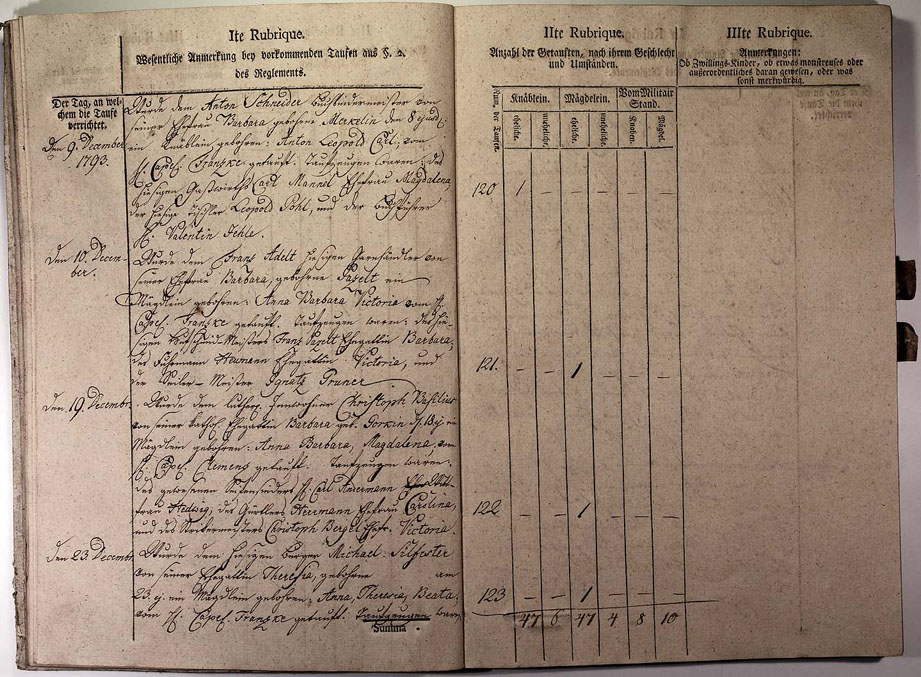 Ite Rubrique.
Wesentliche Anmerkung bey vorkommenden Taufen aus §. 2.
des Reglements.
Der Tag, an wel-
chem die Taufe
verrichtet.
Den 9. December
1793.
Wurde dem Anton Schneider von
seiner Ehefrau Barbara gebohrne Merkelin den 8
ein Knäblein gebohren: Anton Leopold Carl, vom
H. Capel. Franzke getauft. Taufzeugen waren: des
hiesigen Gastwirths Carl Mannel Ehefrau Magdalena
der hiesige Leopold Pohl, und der
H. Valentin Jehle.
Den 10. Decem-
ber.
Wurde dem Franz Adelt hiesigen Garnhändler von
seiner Ehefrau Barbara, gebohrne Pazelt ein
Mägdlein gebohren: Anna Barbara Victoria vom H.
Capel. Franzke getauft. Taufzeugen waren: des hie-
sigen Franz Pazelt Ehegattin Barbara,
des Fuhrmann Heumann Ehegattin Victoria, und
der Seiler-Meister Ignatz Pruner
Den 19. Decembr.
Wurde dem luther. Innwohner Christoph Basilius
von seiner kathol. Ehegattin Barbara geb. Gorkin ein
Mägdlein gebohren: Anna Barbara, Magdalena, vom
H. Capel. Clemens getauft. Taufzeugen waren.
des gewesenen Seifensieders H. Carl
frau Hedwig, des Gürtlers Herrmann Ehefrau Carolina,
und des Christoph Berget Ehefr. Victoria.
Den 23 Decembr
Wurde dem hiesigen Burger Michael Silfester
von seiner Ehegattin Theresia, gebohrne am
23. ej. ein Mägdlein gebohren: Anna, Theresia, Beata.
vom H. Capel. Franzke getauft. Taufzeugen waren
Summa
IIte Rubrique.
Anzahl der Getauften, nach ihrem Geschlecht
und Umständen.
Num. der Taufen.
Knäblein. Mägdelein. Vom Militair
Stand.
eheliche. uneheliche. eheliche. uneheliche. Knaben. Mägdel.
120 1 – – – – –
121. – – 1 – – –
122 – – 1 – – –
123 – – 1 – – –
47 6 47 4 8 10
IIIte Rubrique.
Anmerkungen:
Ob Zwillings-Kinder, ob etwas monstreuses oder
außerordentliches daran gewesen, oder was
sonst merkwürdig.